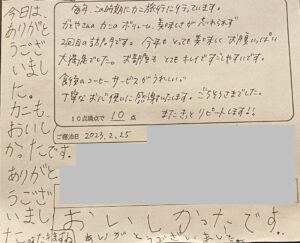 毎年、この時期にカニ旅行に行っています。
カニのボリューム、美味しさが忘れられず
2回目の訪れです。今年もとっても美味しくお腹いっぱい
大満足でした。お部屋もとてもキレイですごしやすいです。
食後のコーヒーサービスがうれしい♡
丁寧なおもてなしに感謝いたします。ごちそうさまでした。
またきっとリピートします!!
10点満点で 10 点
ご宿泊日 2023.2.25
今日は
ありがと
うござい
ました。
カニも、
おいし
かったです。
ありがと
うござい
ました。
おいしかったです。
ありがとうございました。